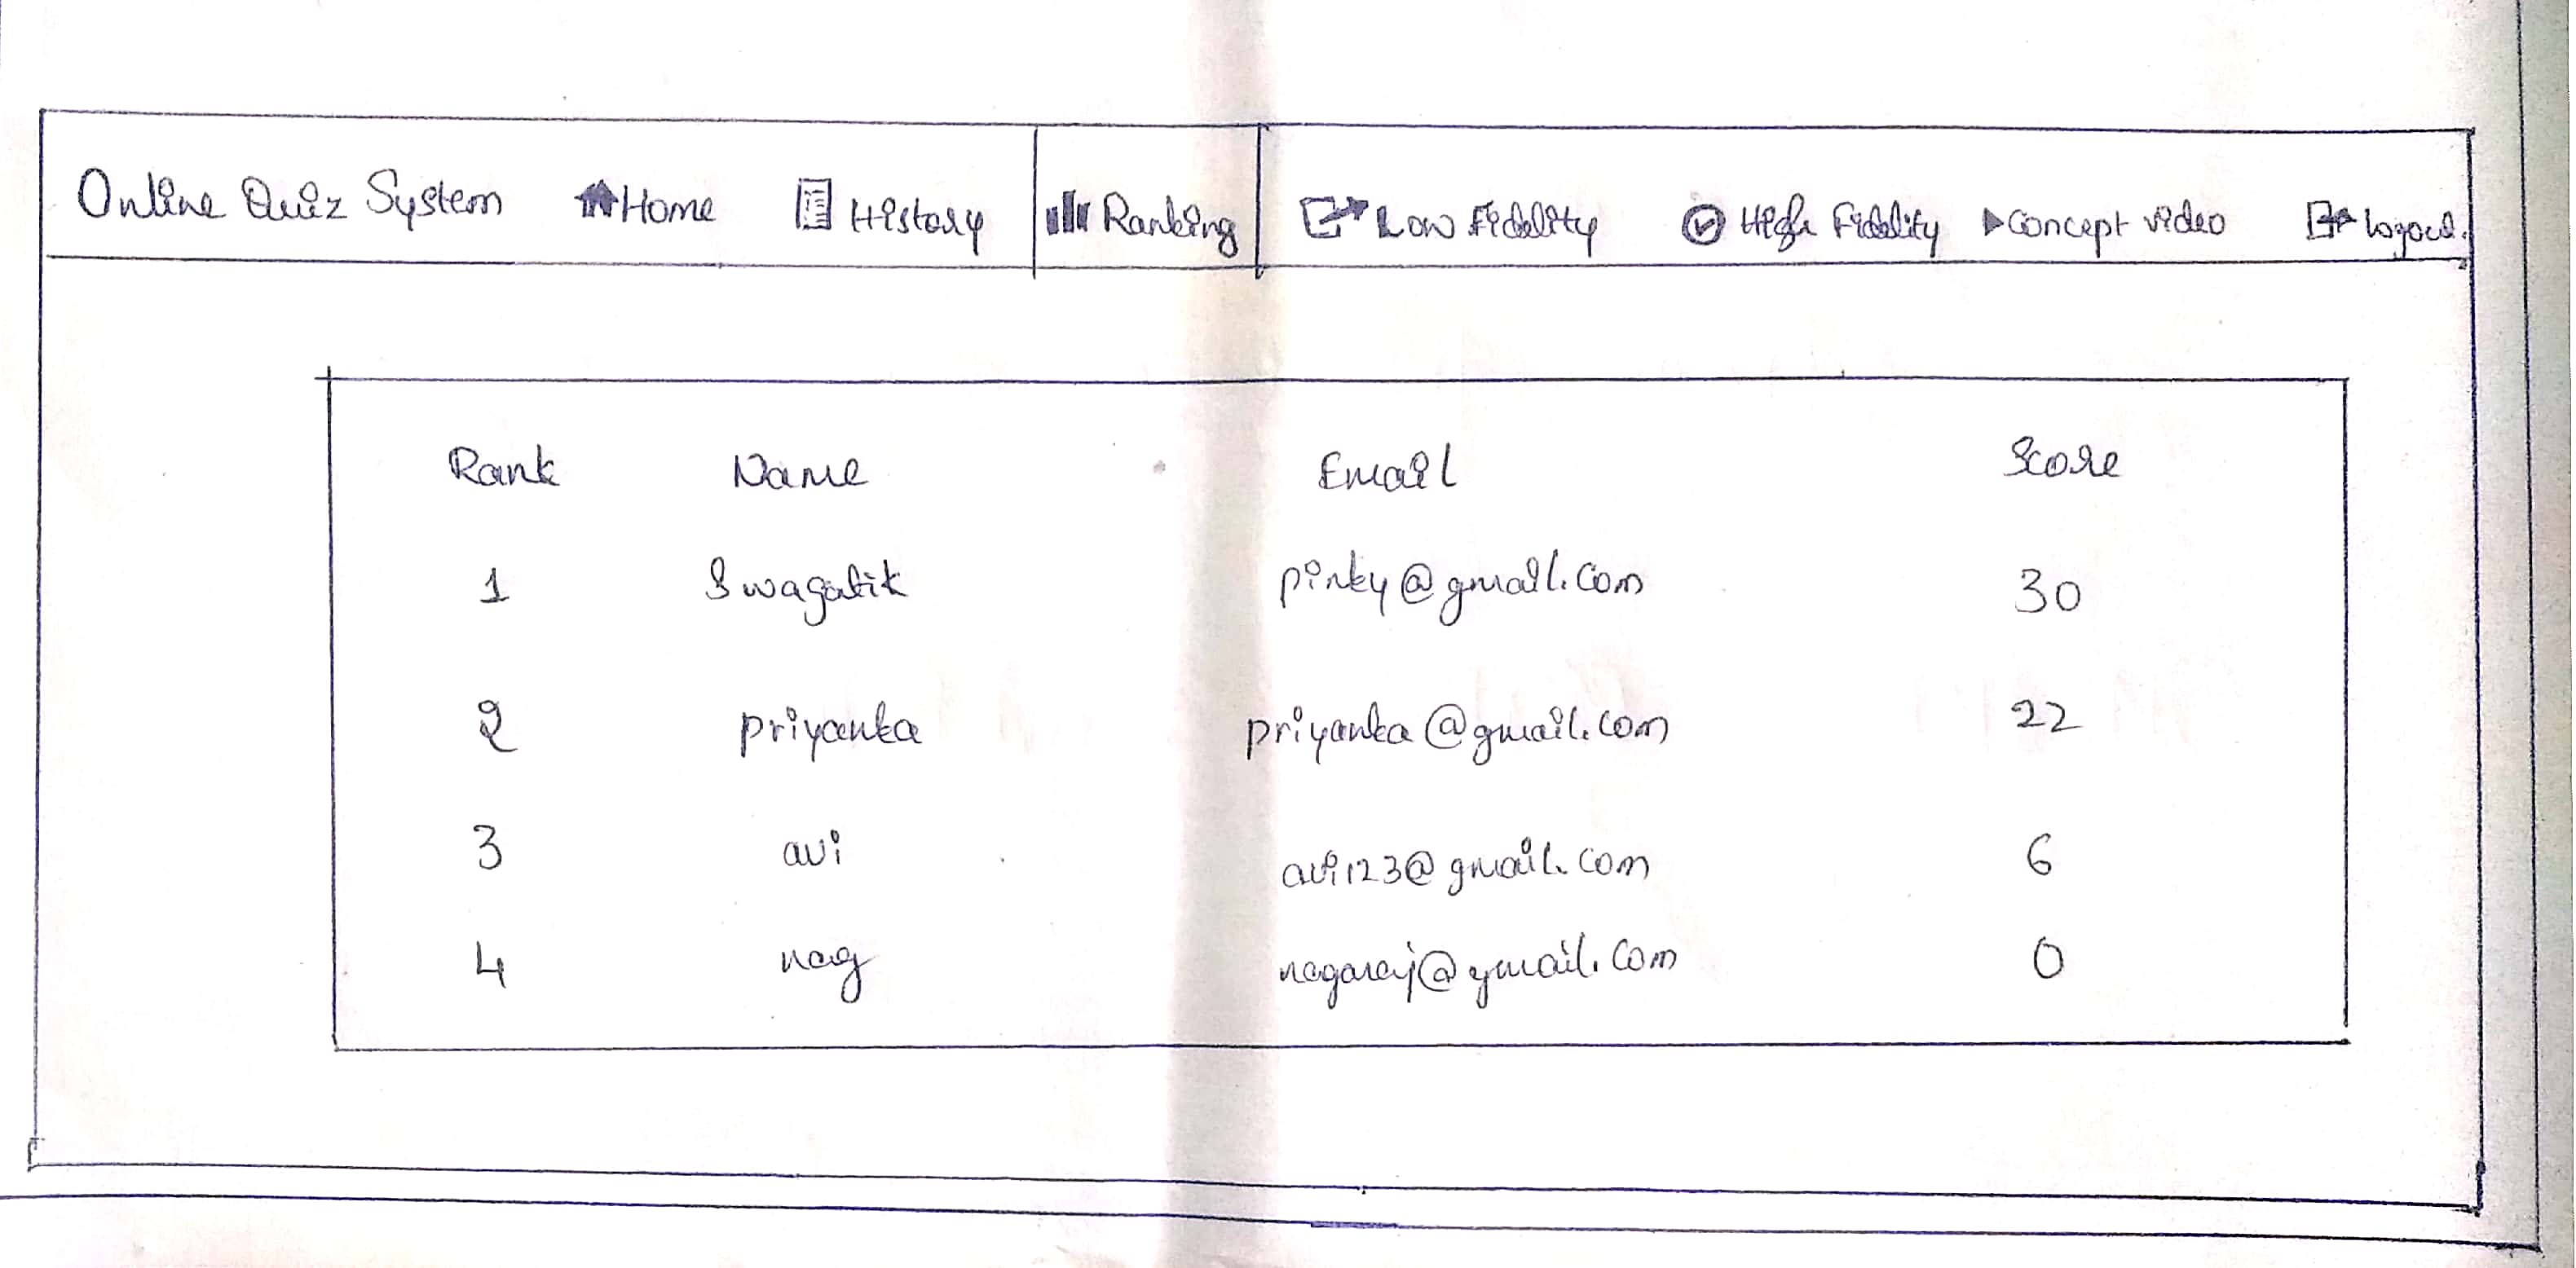 Online Quiz System Home History Ranking Low Fidelity High Fidelity Concept video Logout.
Rank Name Email Score
1 Swagatik pinky@gmail.com 30
2 priyanka priyanka@gmail.com 22
3 avi avi123@gmail.com 6
4 nag nagaraj@gmail.com 0